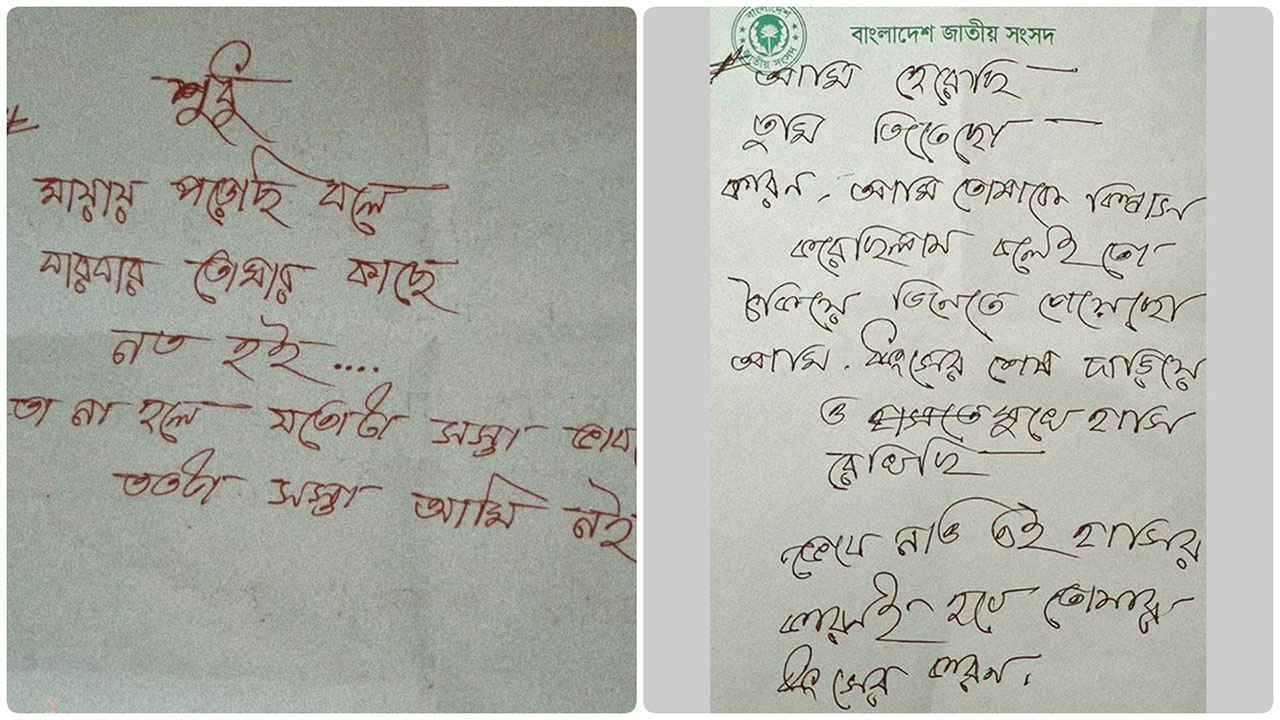 শুধু
মায়ায় পড়েছি বলে
বারবার তোমার কাছে
নত হই....
তা না হলে যতোটা সস্তা ভাব
ততটা সস্তা আমি নই
বাংলাদেশ জাতীয় সংসদ
বাংলাদেশ
জাতীয় সংসদ
আমি হেরেছি —
তুমি জিতেছো —
কারন, আমি তোমাকে বিশ্বাস
করেছিলাম বলেই তো
ঠকিয়ে জিততে পেরেছো
আমি. ধ্বংসের শেষ দাড়িয়ে
ও মুখে হাসি
রেখেছি —
জেনে নাও এই হাসির
কারনই হবে তোমার
ধ্বংসের কারন.